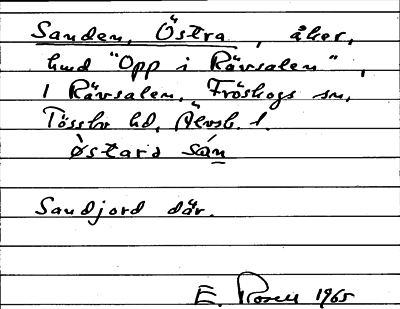 Sanden, Östra, åker,
hmd "Opp i Rävsalen",
1 Rävsalen, Fröskogs sn,
Tössbo hd, Älvsb. l.
ø̀stara sán
Sandjord där.
E. Rosell 1965